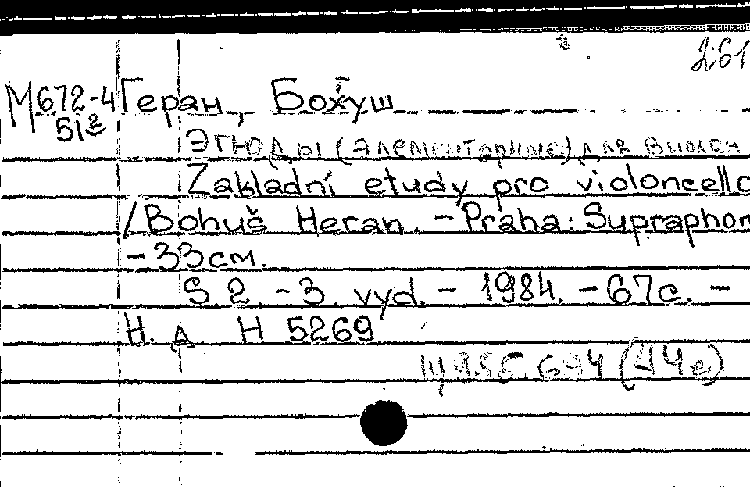 261
М672-4 Геран, Бохуш
51
Этюды (элементарные) для виолон
Základní etudy pro violoncello
/Bohuš Heran. - Praha: Supraphon
- 33см.
S 2. - 3. vyd. - 1984. - 67с. -
Н. д. H 5269